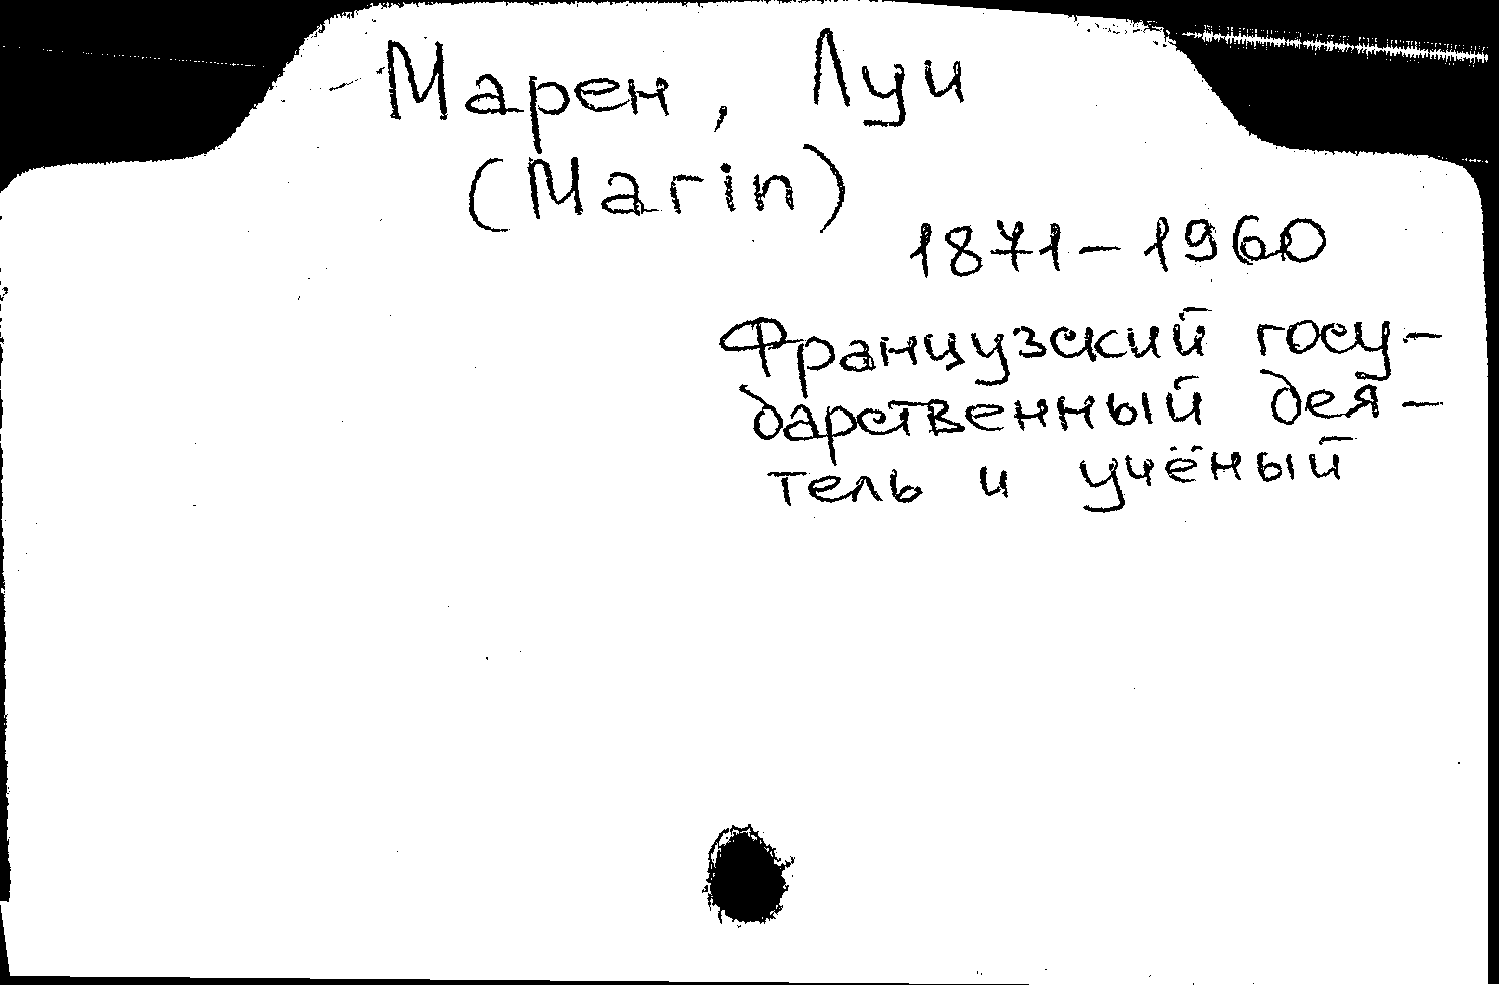 Марен, Луи
(Marin)
1871-1960
Французский госу-
дарственный дея-
тель и учёный